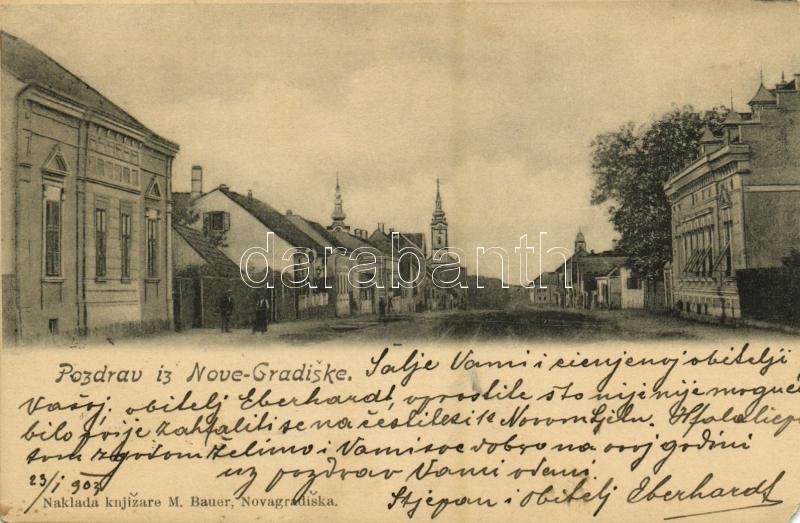 darabanth
Pozdrav iz Nove-Gradiške. Šalje Vami i cienjenoj obitelji
Vašoj, obitelj Eberhardt, oprostite što nije nije moguće
bilo prije zahvaliti se na čestitci k Novom ljetu. Hfala liepa
tom zgodom želimo i Vami sve dobro na ovoj godini
uz pozdrav Vami odani
23/1 903
Stjepan i obitelj Eberhardt
Naklada knjižare M. Bauer, Novagradiška.